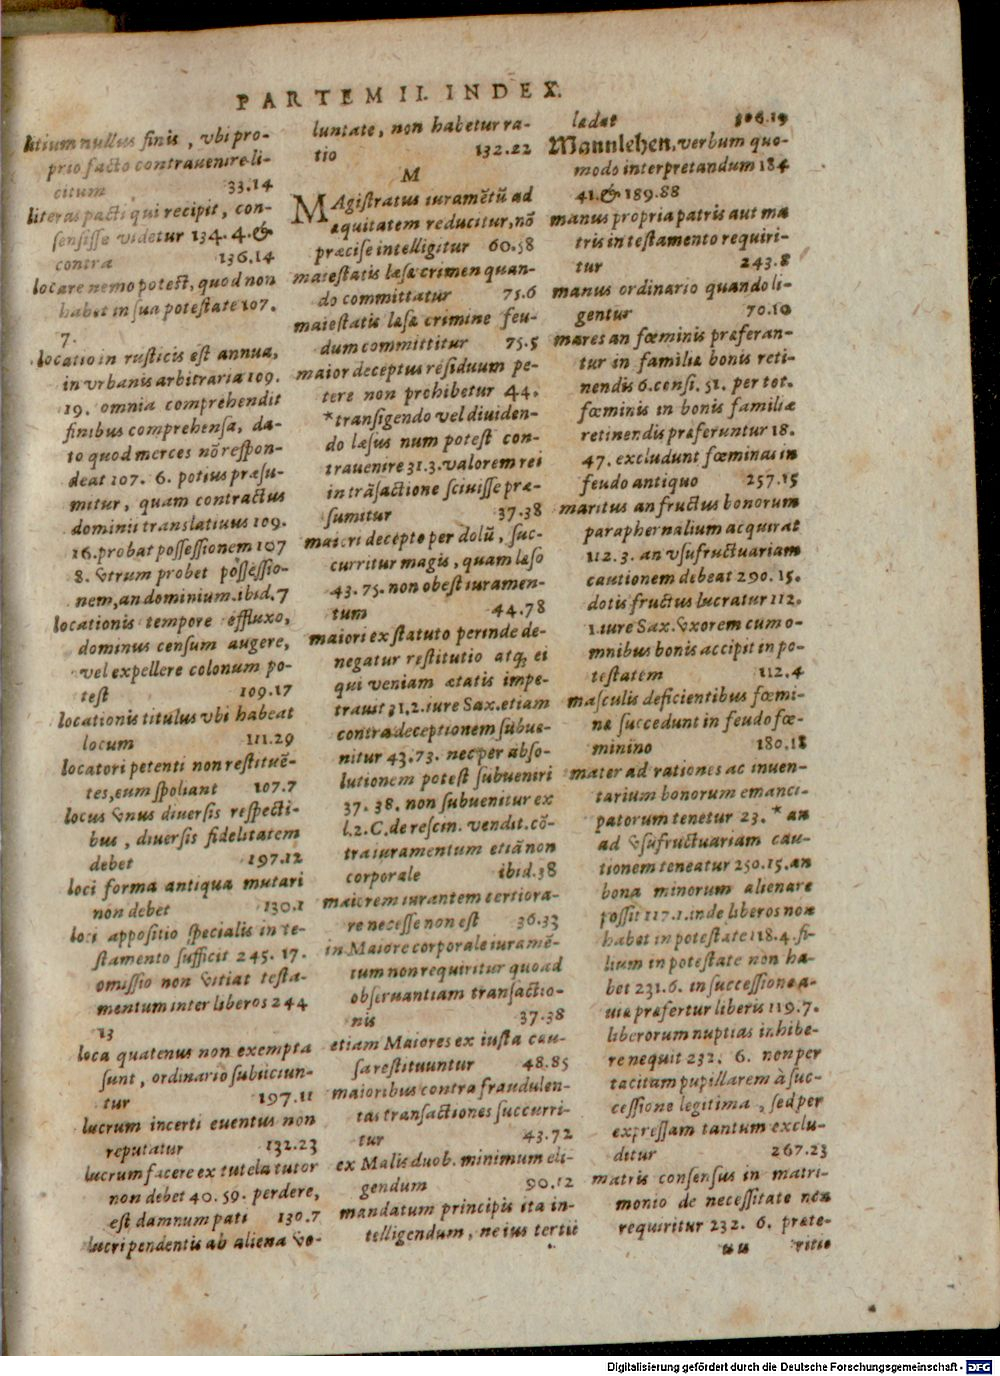 PARTEM II. INDEX.
litium nullus finis, vbi pro-
prio facto contrauenire li-
citum 33.14
literas pacti qui recipit, con-
sensisse videtur 134. 4. &
contra 136.14
locare nemo potest, quod non
habet in sua potestate 107.
7.
locatio in rusticis est annua,
in vrbanis arbitraria 109.
19. omnia comprehendit
finibus comprehensa, da-
to quod merces nō respon-
deat 107. 6. potius præsu-
mitur, quam contractus
dominii translatiuus 109.
16. probat possessionem 107
8. vtrum probet possessio-
nem, an dominium. ibid. 7
locationis tempore effluxo,
dominus censum augere,
vel expellere colonum po-
test 109.17
locationis titulus vbi habeat
locum 111.29
locatori petenti non restituē-
tes, eum spoliant 107.7
locus vnus diuersis respecti-
bus, diuersis fidelitatem
debet 197.12
loci forma antiqua mutari
non debet 130.1
loci appositio specialis in te-
stamento sufficit 245. 17.
omissio non vitiat testa-
mentum inter liberos 244
13
loca quatenus non exempta
sunt, ordinario subiiciun-
tur 197.11
lucrum incerti euentus non
reputatur 132.23
lucrum facere ex tutela tutor
non debet 40. 59. perdere,
est damnum pati 130.7
lucri pendentis ab aliena vo-
luntate, non habetur ra-
tio 132.22
M
MAgistratus iuramētū ad
æquitatem reducitur, nō
præcise intelligitur 60.58
maiestatis læsæ crimen quan-
do committatur 75.6
maiestatis læsæ crimine feu-
dum committitur 75.5
maior deceptus residuum pe-
tere non prohibetur 44.
* transigendo vel diuiden-
do læsus num potest con-
trauenire 31.3. valorem rei
in trāsactione sciuisse præ-
sumitur 37.38
maiori decepto per dolū, suc-
curritur magis, quam læso
43. 75. non obest iuramen-
tum 44.78
maiori ex statuto perinde de-
negatur restitutio atq; ei
qui veniam ætatis impe-
trauit 31.2. iure Sax. etiam
contra deceptionem subue-
nitur 43.73. nec per abso-
lutionem potest subueniri
37. 38. non subuenitur ex
l.2. C. de rescin. vendit. cō-
tra iuramentum etiā non
corporale ibid. 38
maiorem iurantem certiora-
re necesse non est 36.33
in Maiore corporale iuramē-
tum non requiritur quoad
obseruantiam transactio-
nis 37.38
etiam Maiores ex iusta cau-
sa restituuntur 48.85
maioribus contra fraudulen-
tas transactiones succurri-
tur 43.72
ex Malis duob. minimum eli-
gendum 90.12
mandatum principis ita in-
telligendum, ne ius tertii
lædat 106.19
Mannlehen, verbum quo-
modo interpretandum 184
41. & 189.88
manus propria patris aut ma
tris in testamento requiri-
tur 243.8
manus ordinario quando li-
gentur 70.10
mares an fœminis præferan-
tur in familiæ bonis reti-
nendis 6. consi. 51. per tot.
fœminis in bonis familiæ
retinendis præferuntur 18.
47. excludunt fœminas in
feudo antiquo 257.15
maritus an fructus bonorum
paraphernalium acquirat
112.3. an vsufructuariam
cautionem debeat 290. 15.
dotis fructus lucratur 112.
1. iure Sax. vxorem cum o-
mnibus bonis accipit in po-
testatem 112.4
masculis deficientibus fœmi-
næ succedunt in feudo fœ-
minino 180.18
mater ad rationes ac inuen-
tarium bonorum emanci-
patorum tenetur 23. * an
ad vsufructuariam cau-
tionem teneatur 250.15. an
bona minorum alienare
possit 117.1. inde liberos non
habet in potestate 118.4. fi-
lium in potestate non ha-
bet 231.6. in successione a-
uiæ præfertur liberis 119.7.
liberorum nuptias inhibe-
re nequit 232. 6. non per
tacitam pupillarem à suc-
cessione legitima, sed per
expressam tantum exclu-
ditur 267.23
matris consensus in matri-
monio de necessitate non
requiritur 232. 6. præte-
uu ritio
Digitalisierung gefördert durch die Deutsche Forschungsgemeinschaft - DFG